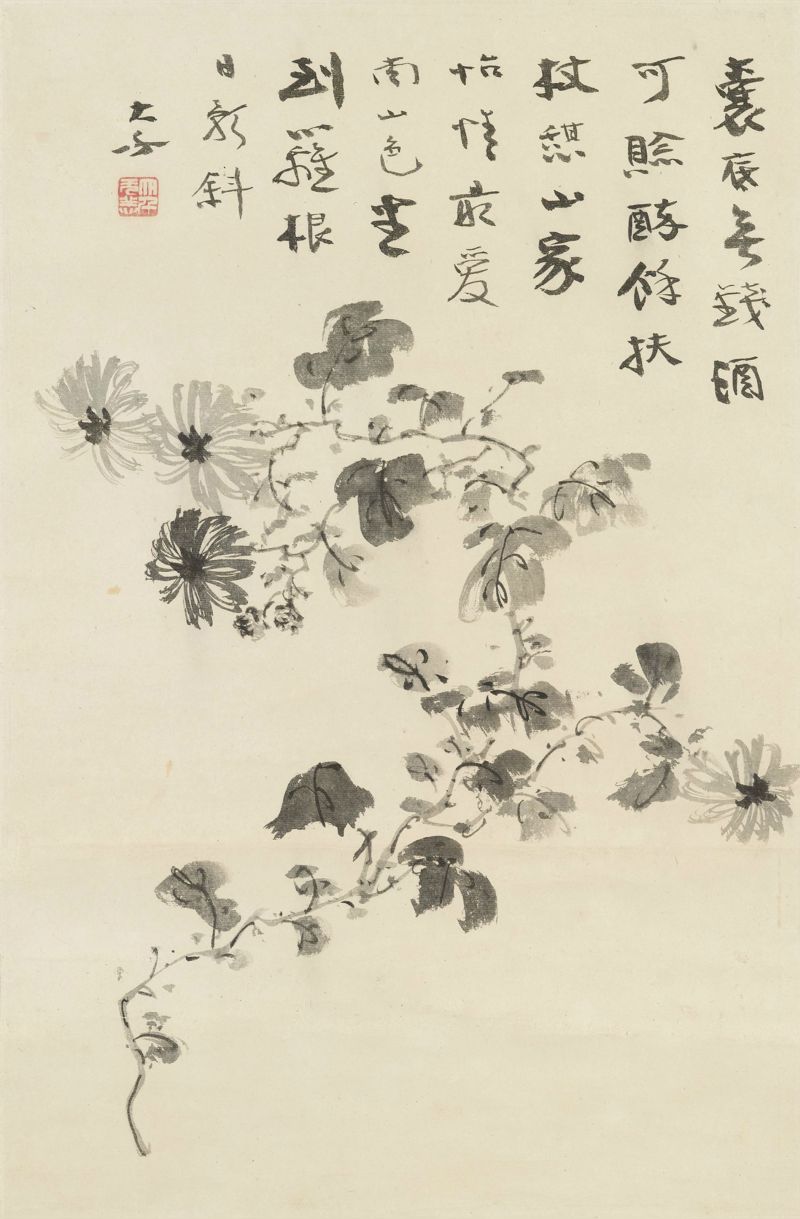 囊底无錢酒
可賒醉餘扶
杖憇山家
怡情最愛
南山色坐
到籬根
日影斜
大千